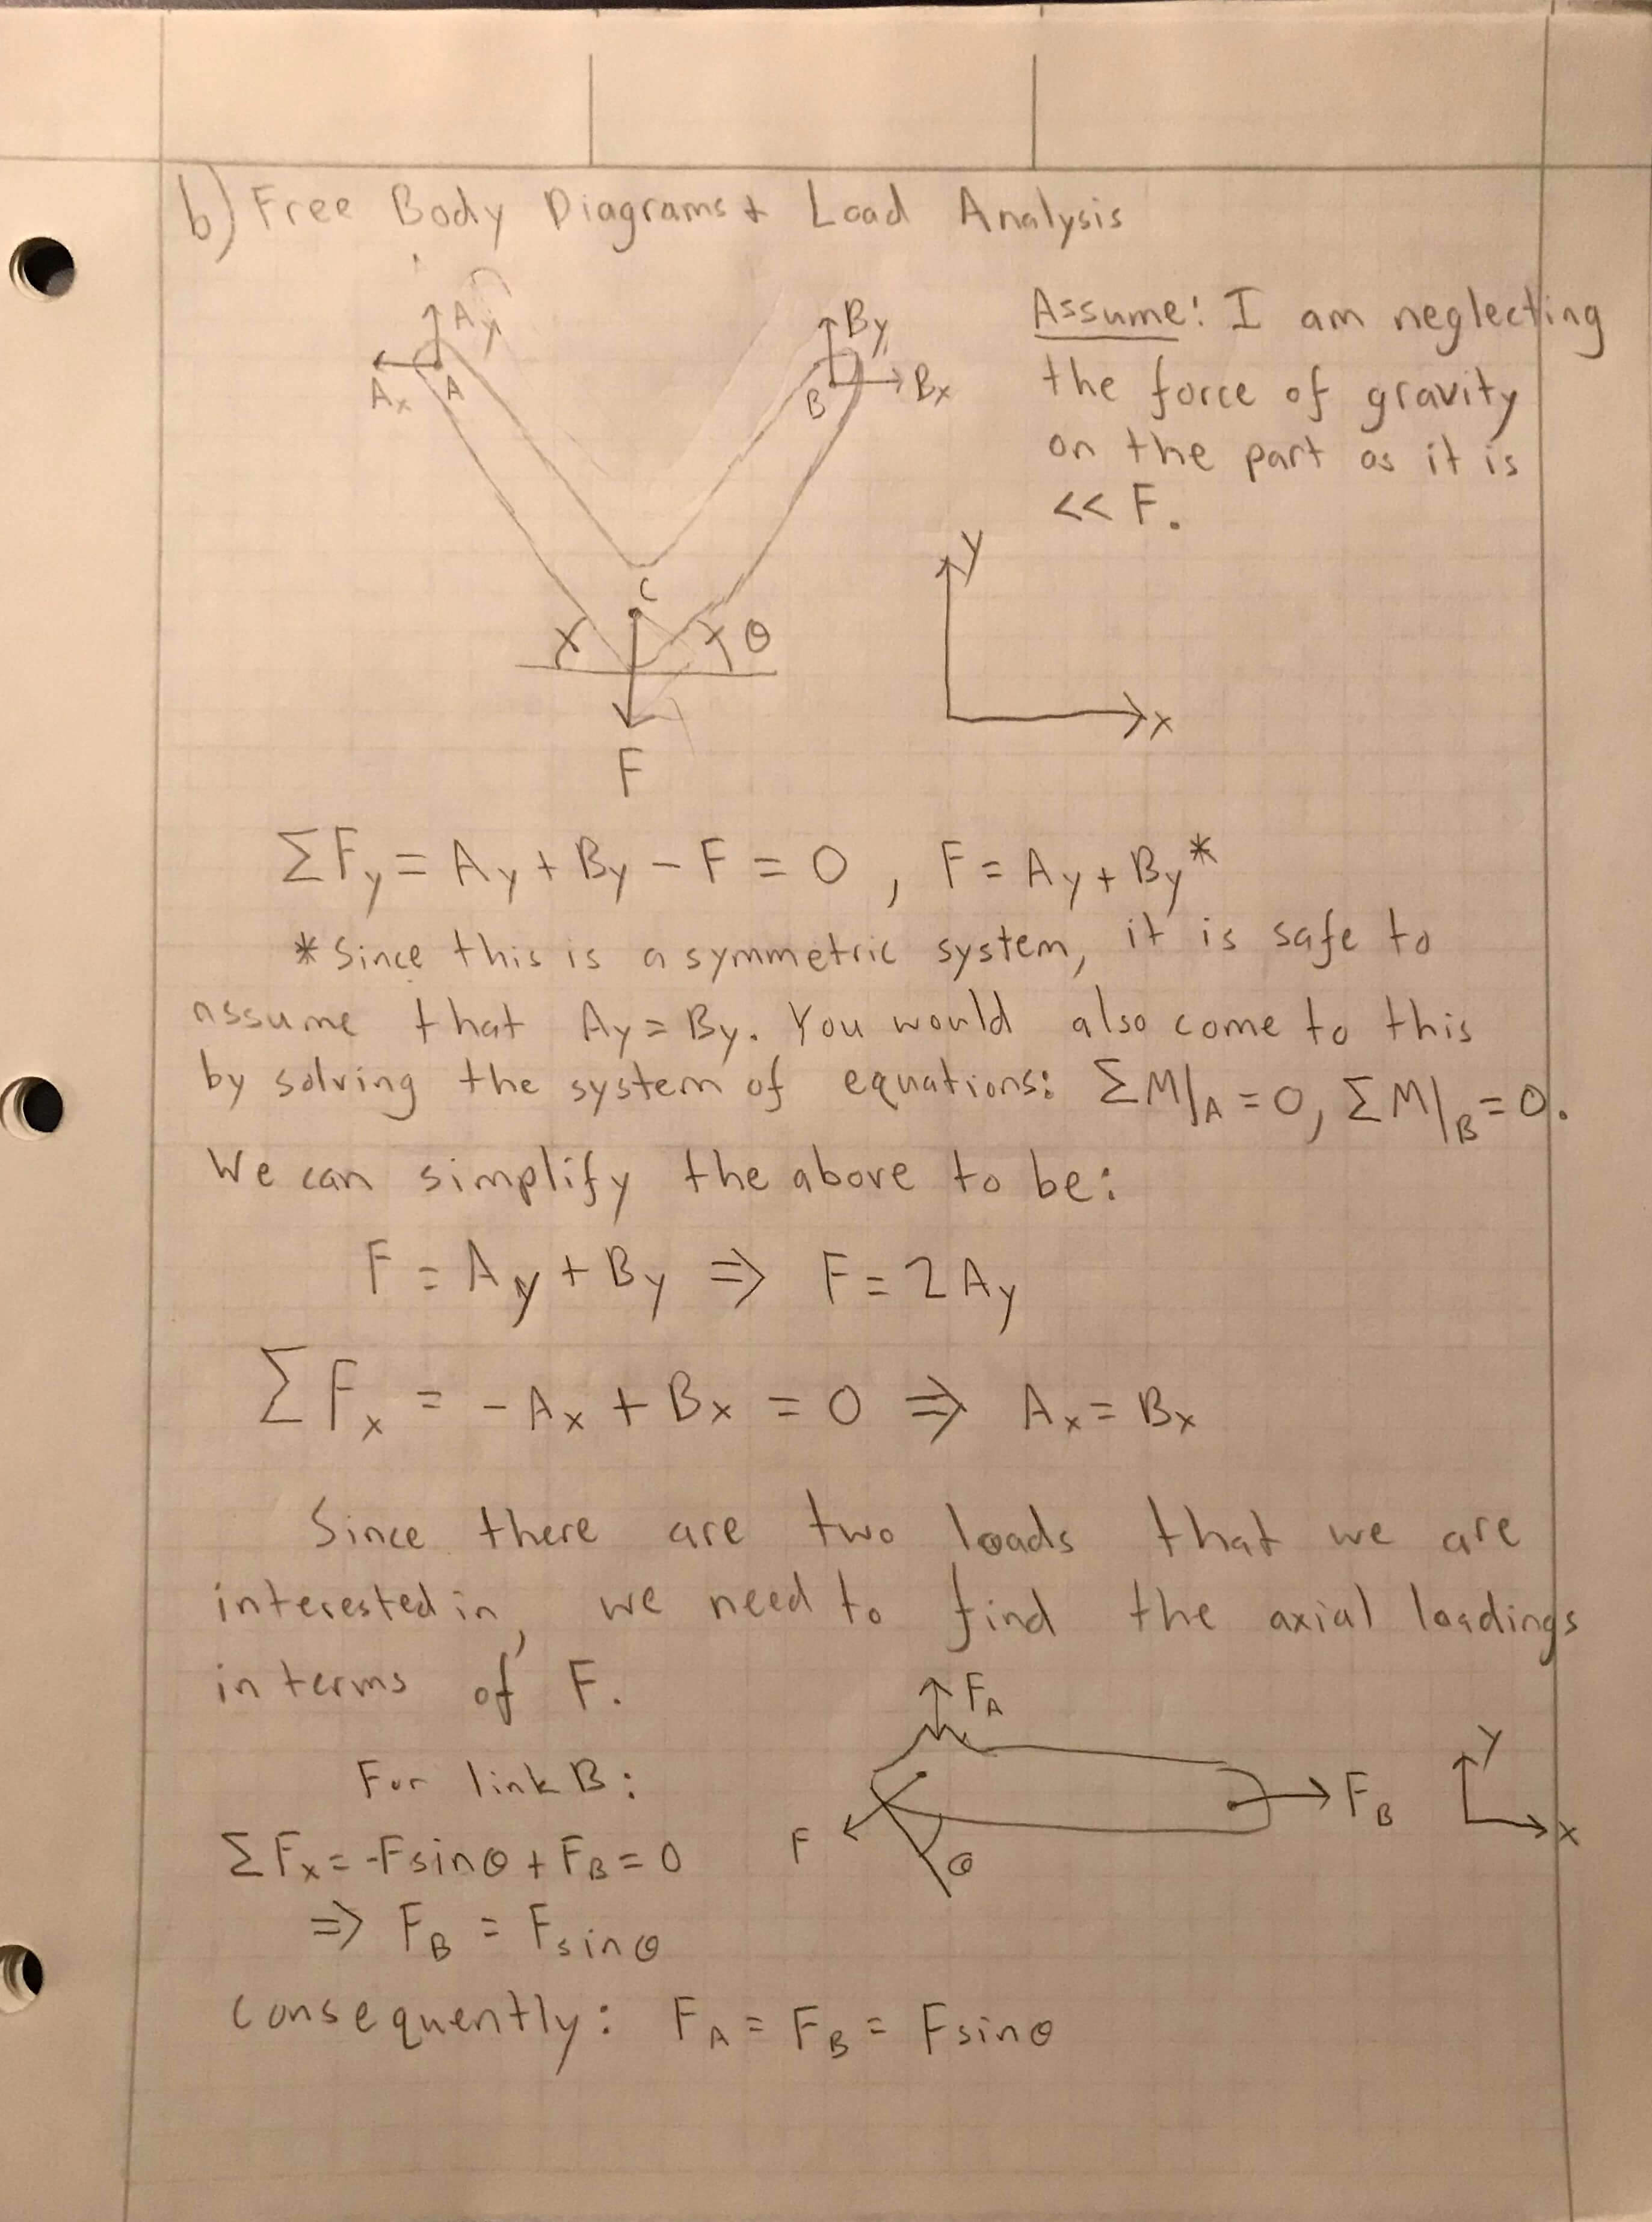 b) Free Body Diagrams + Load Analysis
Ay
Ax
A
By
B
Bx
Assume: I am neglecting
the force of gravity
on the part as it is
<< F.
y
x
C
θ
F
ΣFy = Ay + By - F = 0 , F = Ay + By*
* Since this is a symmetric system, it is safe to
assume that Ay = By. You would also come to this
by solving the system of equations: ΣM|A = 0, ΣM|B = 0.
We can simplify the above to be:
F = Ay + By => F = 2Ay
ΣFx = -Ax + Bx = 0 => Ax = Bx
Since there are two loads that we are
interested in, we need to find the axial loadings
in terms of F.
FA
For link B:
FB
y
x
F
θ
ΣFx = -Fsinθ + FB = 0
=> FB = Fsinθ
Consequently: FA = FB = Fsinθ